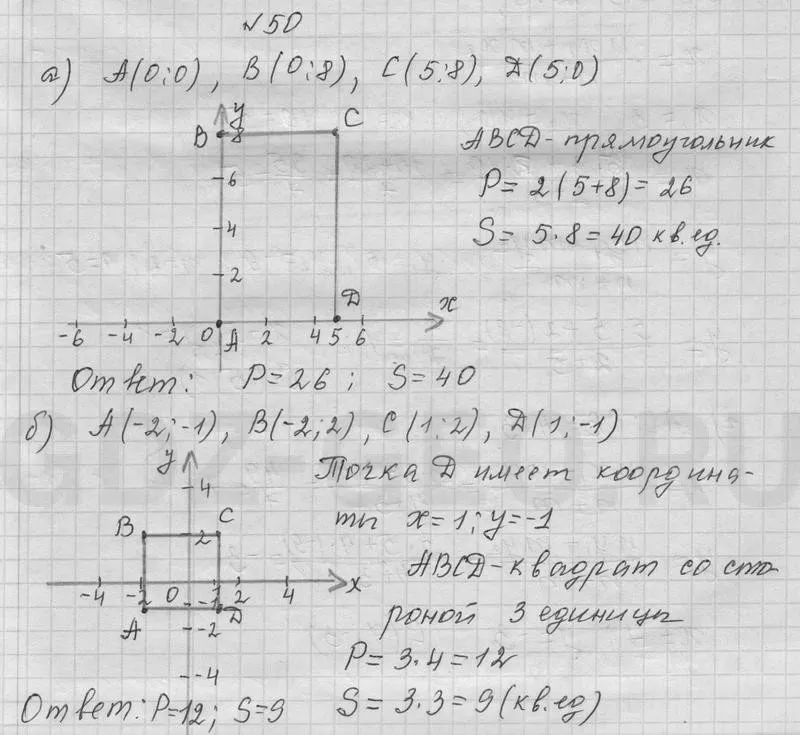 №50
а) A(0;0), B(0;8), C(5;8), D(5;0)
y
B 8 C
6
4
2
ABCD - прямоугольник
P = 2(5+8) = 26
S = 5·8 = 40 кв.ед.
D x
-6 -4 -2 0 A 2 4 5 6
Ответ: P=26; S=40
б) A(-2;-1), B(-2;2), C(1;2), D(1;-1)
y
4
B C
2
-4 -2 0 1 2 4 x
-1
A D
-2
-4
Точка D имеет координа-
ты x=1; y=-1
ABCD - квадрат со сто
роной 3 единицы
P = 3·4 = 12
S = 3·3 = 9 (кв.ед)
Ответ: P=12; S=9
GDZ-GEO.RU